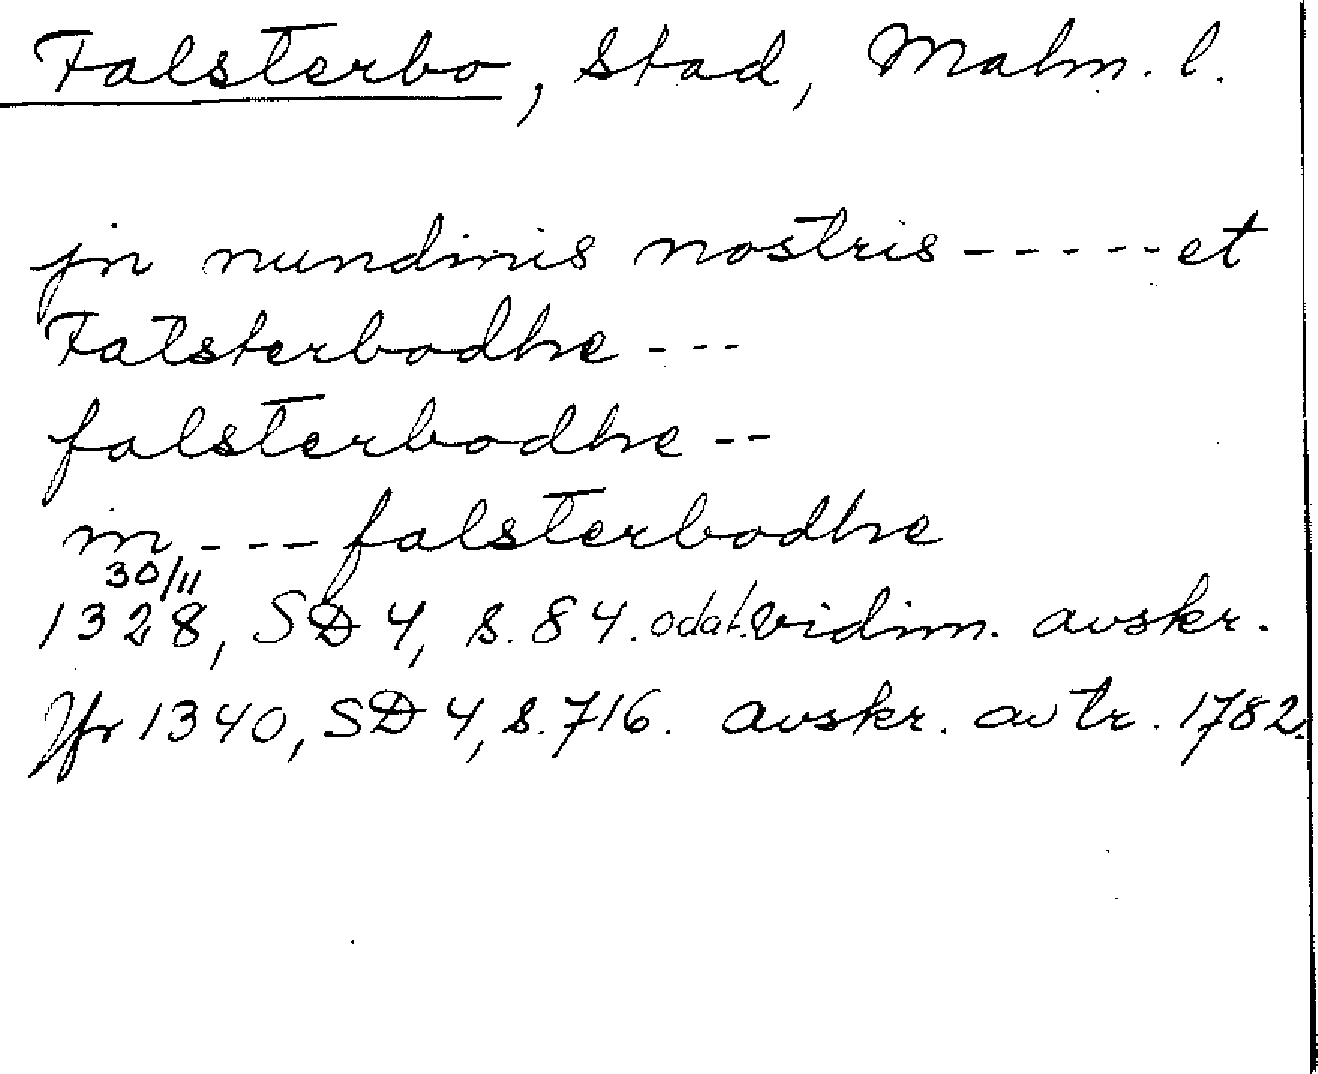 Falsterbo, Stad, Malm. l.
jn nundinis nostris-----et
Falsterbodhe---
falsterbodhe--
in---falsterbodhe
30/11
1328, SD 4, s. 84. odat. vidim. avskr.
Jfr 1340, SD 4, s. 716. avskr. av tr. 1782.